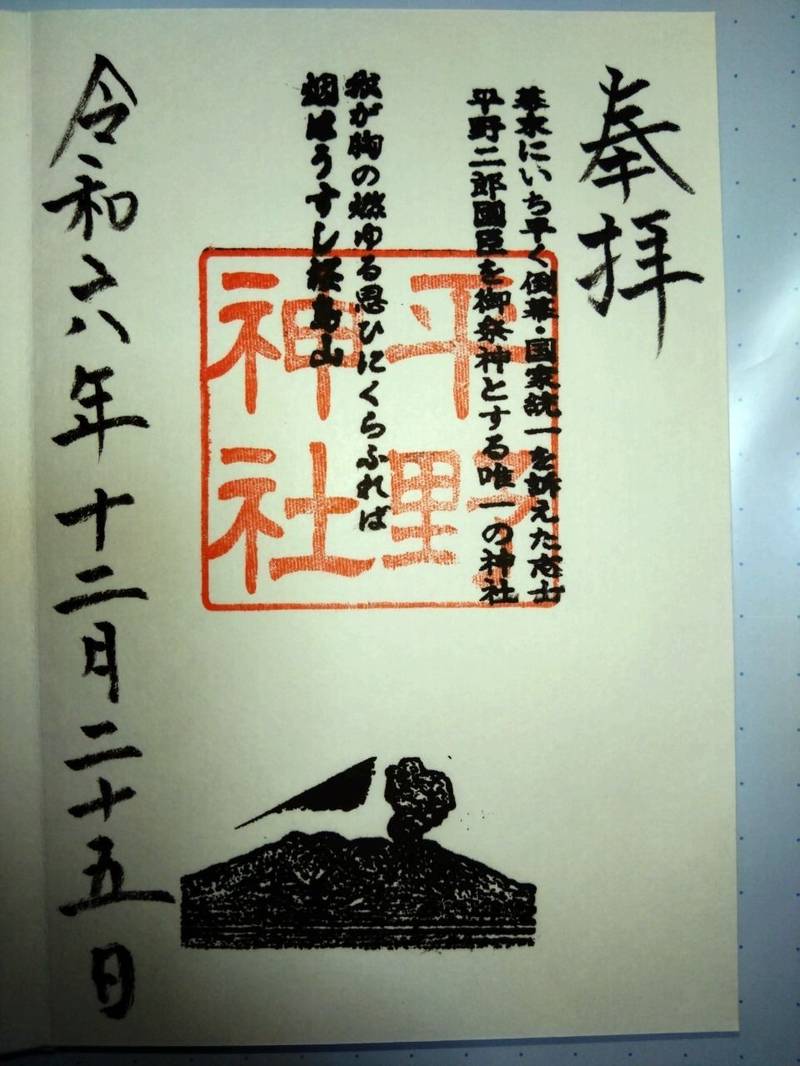 奉拝
幕末にいち早く倒幕・国家統一を訴えた志士
平野二郎國臣を御祭神とする唯一の神社
平野
神社
我が胸の燃ゆる思ひにくらふれば
烟はうすし桜島山
令和六年十二月二十五日